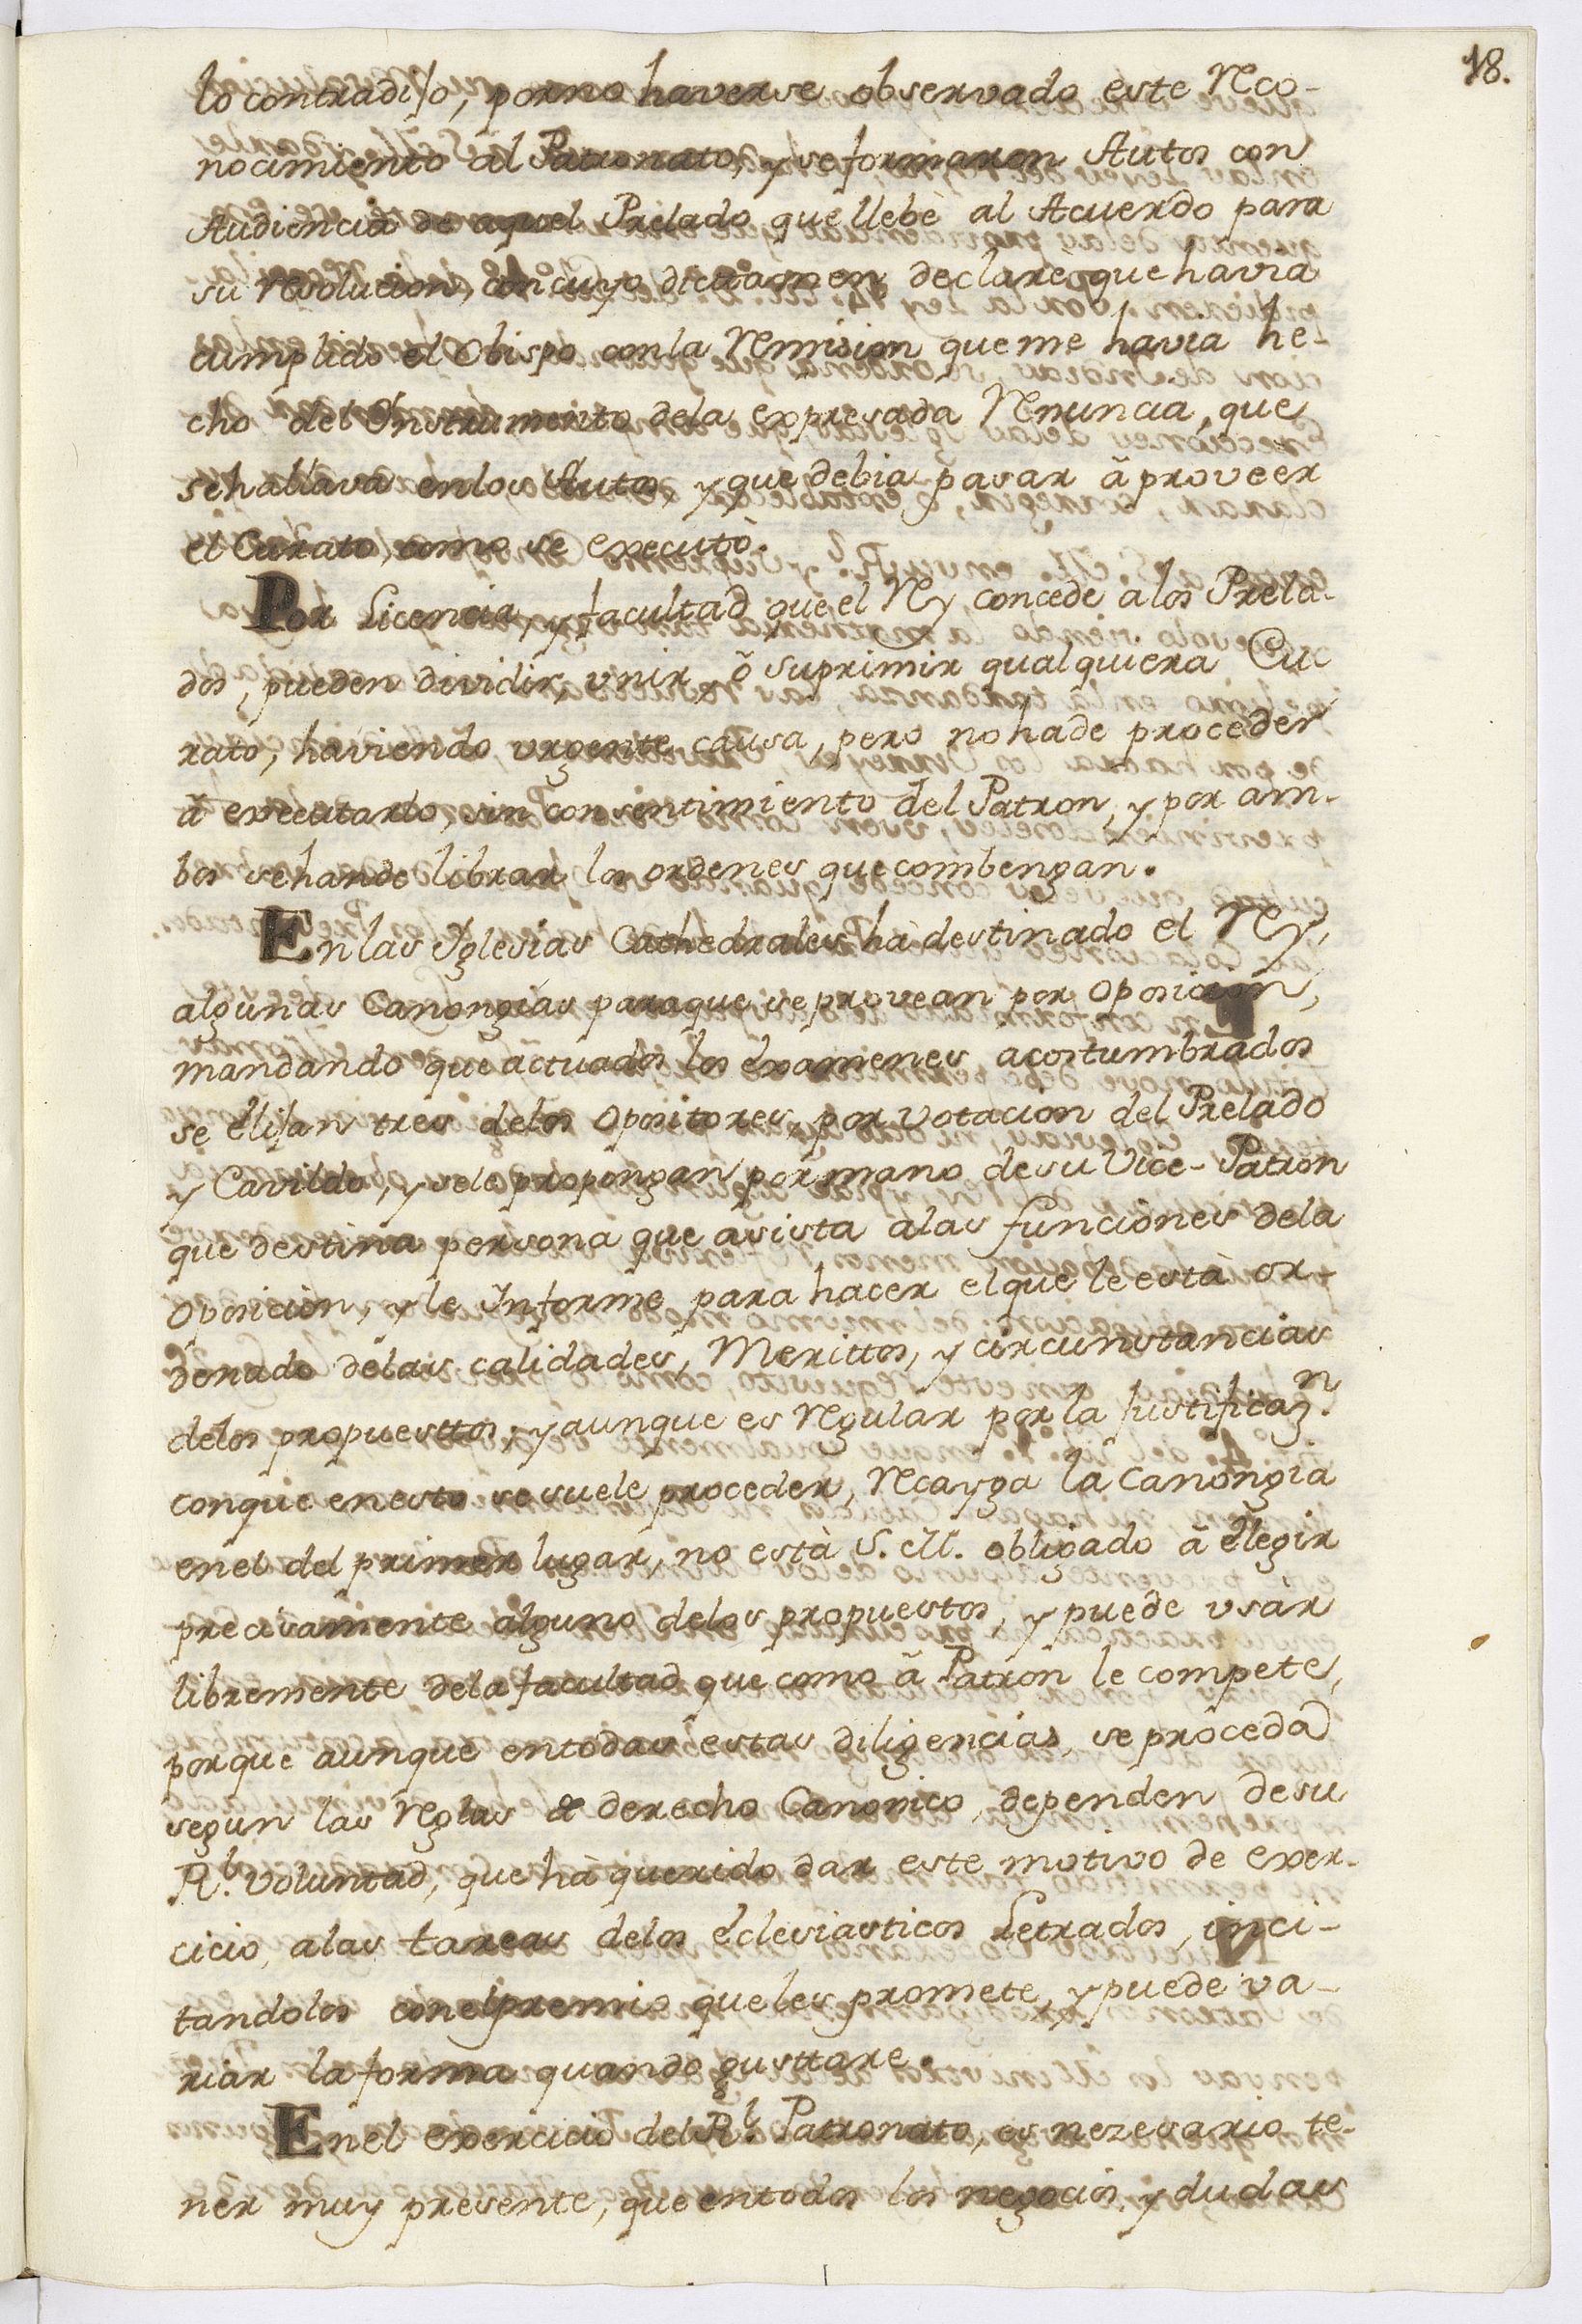 18.
lo contradijo, por no haverse observado este Reco-
nocimiento al Patronato, y se formaron Autos con
Audiencia de aquel Prelado que llebè al Acuerdo para
su resolucion, con cuyo dictamen declarè que havia
cumplido el Obispo con la Remision que me havia he-
cho del Instrumento dela expresada Renuncia, que
se hallava en los Autos, y que debia pasar â proveer
el Curato, como se executò.
Por Licencia, y facultad que el Rey concede a los Prela-
dos, pueden dividir, vnir, ô suprimir qualquiera Cu-
rato, haviendo vrgente causa, pero no hade proceder
â executarlo, sin consentimiento del Patron, y por am-
bos sehande librar los ordenes que combengan.
En las Iglesias Cathedrales hà destinado el Rey,
algunas Canongias paraque se provean por Oposicion,
mandando que actuados los examenes acostumbrados
se elijan tres delos Opositores, por votacion del Prelado
y Cavildo, y sele propongan por mano de su Vice-Patron
que destina persona que asista alas funciones dela
Oposicion, y le Informe para hacer el que le està or-
denado delas calidades, Merittos, y circunstancias
delos propuesttos, y aunque es Regular por la Justificaz.n
conque enesto se suele proceder, Recayga la Canongia
enel del primer lugar, no està S. M. obligado â elegir
precisamente alguno delos propuestos, y puede vsar
libremente dela facultad que como â Patron le compete,
porque aunque entodas estas diligencias se proceda
segun las Reglas de derecho Canonico, dependen desu
R.l voluntad, que hà querido dar este motivo de exer-
cicio, alas tareas delos eclesiasticos Letrados, inci-
tandolos conelpremio queles promete, y puede va-
riar la forma quando gusttare.
Enel exercicio del R.l Patronato, es nezesario te-
ner muy presente, que entodos los negocios, y dudas